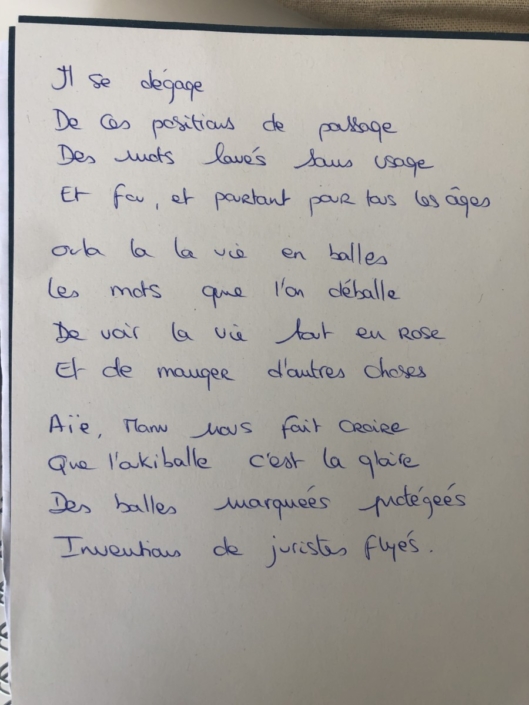 Il se dégage
De ces positions de passage
Des mots lavés sans usage
Et fou, et pourtant pour tous les âges
oula la la vie en balles
Les mots que l'on déballe
De voir la vie tout en Rose
Et de manger d'autres choses
Aïe, Manu nous fait croire
Que l'akiballe c'est la gloire
Des balles marquées protégées
Inventions de juristes flyés.